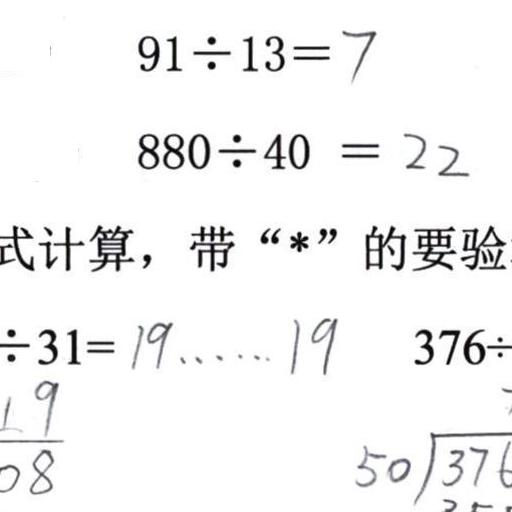 91÷13=7
880÷40 = 22
式计算，带“*”的要验
÷31=19……19 376÷
19
08 50)376